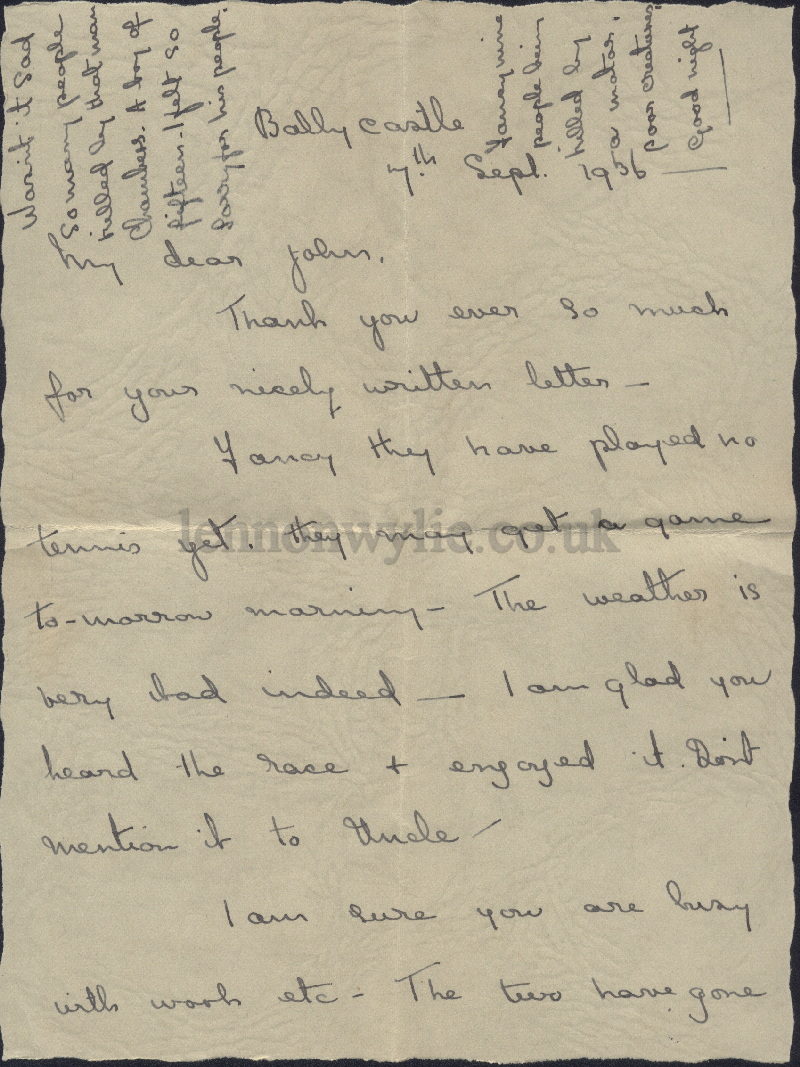 Ballycastle
7th Sept. 1936
My dear John,
Thank you ever so much
for your nicely written letter –
Fancy they have played no
tennis yet. They may get a game
to-morrow morning – The weather is
very bad indeed – I am glad you
heard the race + enjoyed it. Don't
mention it to Uncle –
I am sure you are busy
with work etc – The two have gone
Wasn't it sad
so many people
killed by that man
Chambers. A boy of
fifteen – I felt so
sorry for his people.
Fancy nine
people being
killed by
a motor.
poor creatures.
Good night
lennonwylie.co.uk